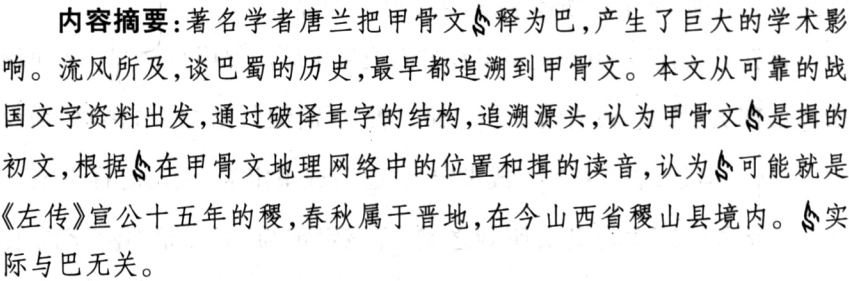 内容摘要:著名学者唐兰把甲骨文释为巴,产生了巨大的学术影
响。流风所及,谈巴蜀的历史,最早都追溯到甲骨文。本文从可靠的战
国文字资料出发,通过破译咠字的结构,追溯源头,认为甲骨文是揖的
初文,根据在甲骨文地理网络中的位置和揖的读音,认为可能就是
《左传》宣公十五年的稷,春秋属于晋地,在今山西省稷山县境内。实
际与巴无关。